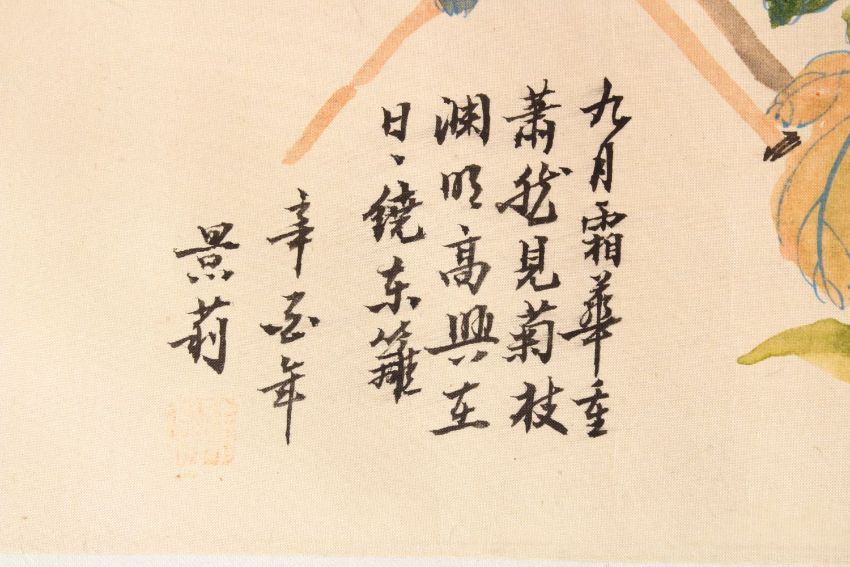 九月霜華重
蕭然見菊枝
渊明高興在
日〻鐃东籬
辛酉年
景莉